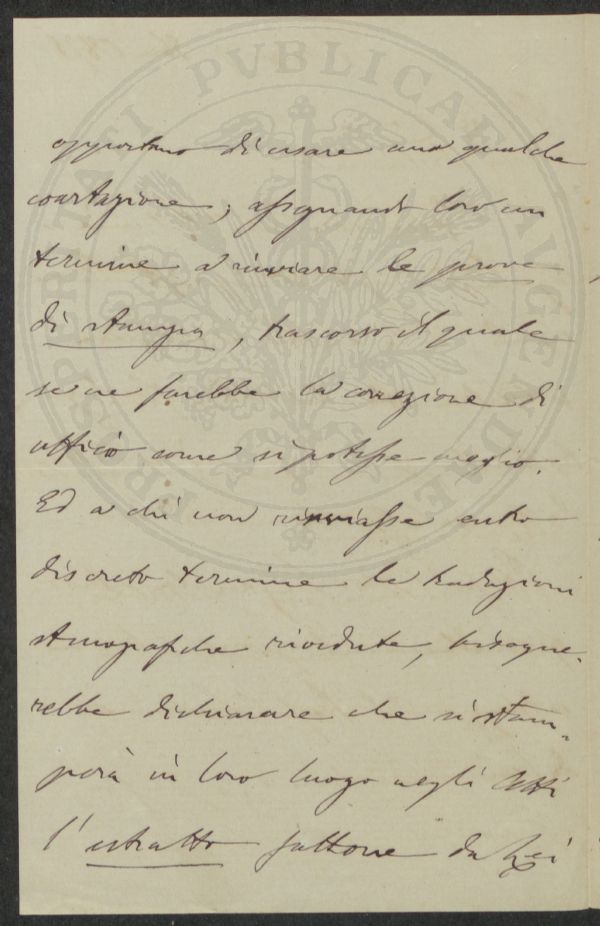 opportuno di usare una qualche
coartazione; assegnando loro un
termine a rinviare le prove
di stampa, trascorso il quale
se ne farebbe la correzione di
ufficio come si potesse meglio.
Ed a chi non rinviasse entro
discreto termine le traduzioni
stenografiche rivedute, bisogne-
rebbe dichiarare che si stam-
perà in loro luogo negli Atti
l'estratto fattone da Lei